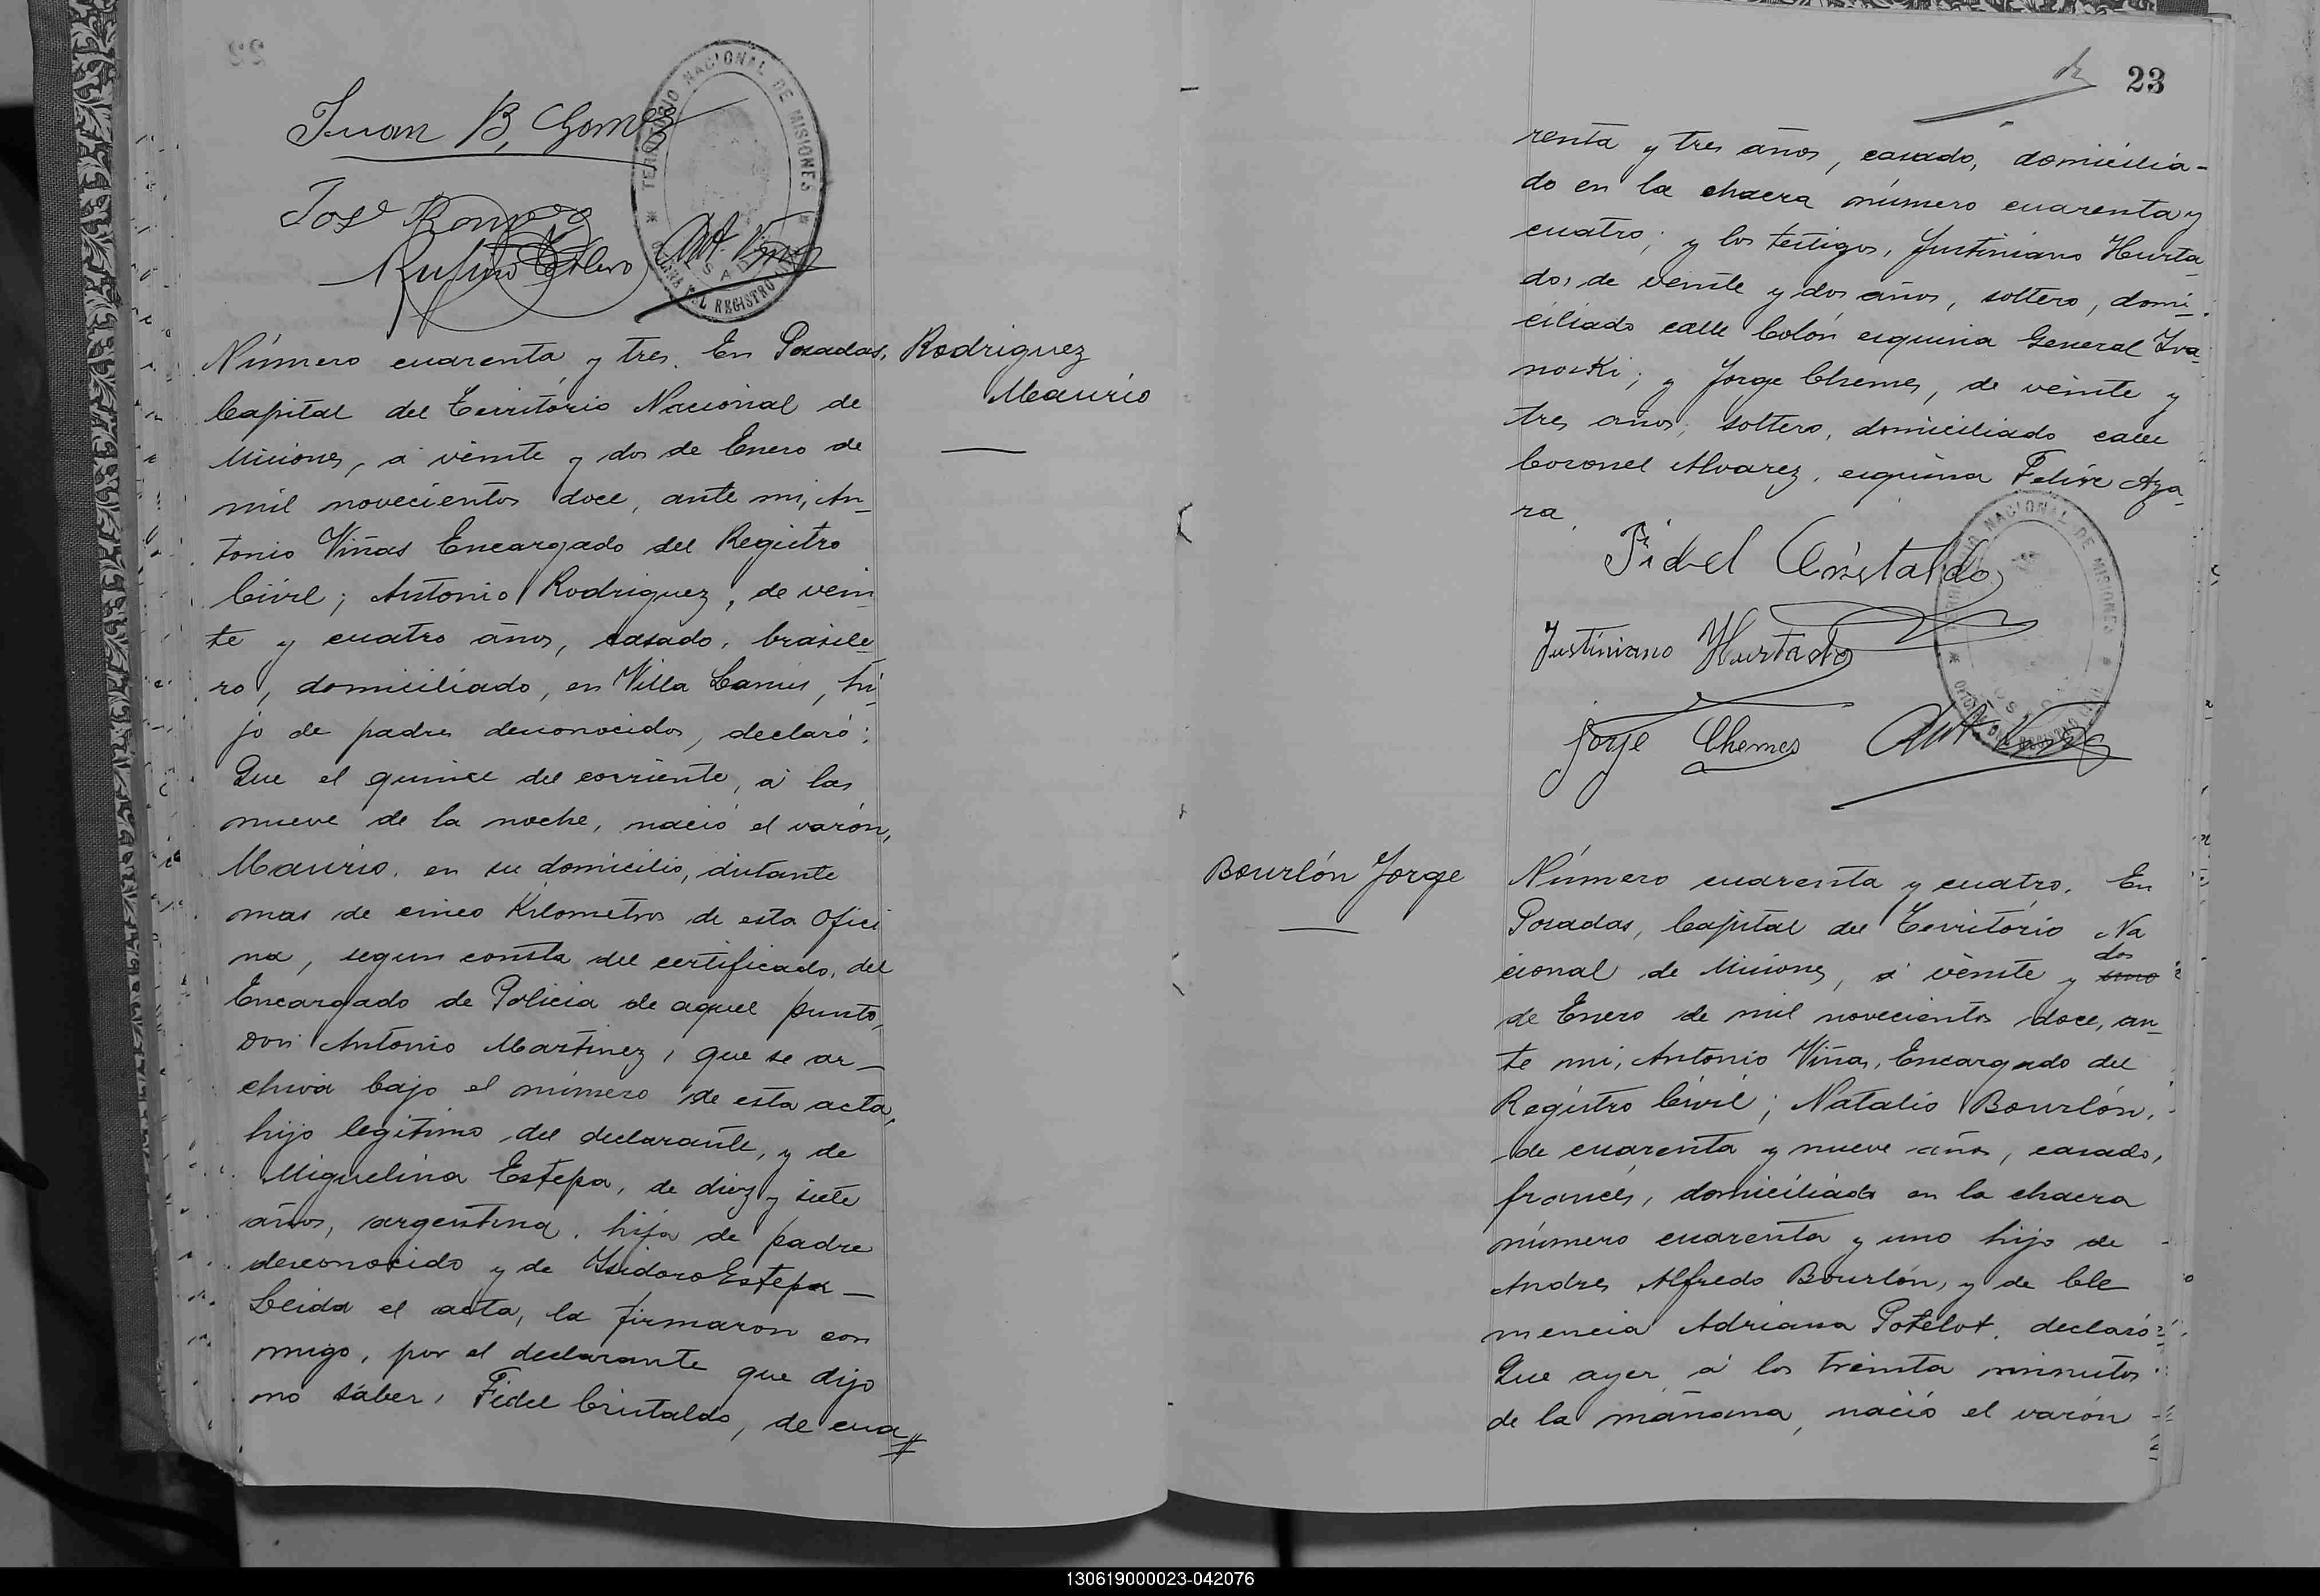 Juan B. Gomez
TERRITORIO NACIONAL DE MISIONES
José
Rufino
Ant Viñas
Número cuarenta y tres. En Posadas,
Rodriguez
Maurio
Capital del Territorio Nacional de
Misiones, á veinte y dos de Enero de
mil novecientos doce, ante mi, An_
tonio Viñas Encargado del Registro
Civil; Antonio Rodriguez, de vein
te y cuatro años, casado, brasile
ro, domiciliado, en Villa Lanus, hi
jo de padres desconocidos, declaró:
Que el quince del corriente, á las
nueve de la noche, nació el varón,
Maurio, en su domicilio, distante
mas de cinco Kilometros de esta Ofici
na, segun consta del certificado, del
Encargado de Policia de aquel punto,
Don Antonio Martinez, que se ar_
chiva bajo el número de esta acta,
hijo legitimo del declarante, y de
Miguelina Estepa, de diez y siete
años, argentina, hija de padre
desconocido y de Isidora Estepa_
Leida el acta, la firmaron con
migo, por el declarante que dijo
no saber, Fidel Cristaldo, de cua
23
renta y tres años, casado, domicilia-
do en la chacra número cuarenta y
cuatro; y los testigos, Justiniano Hurta_
do, de veinte y dos años, soltero, domi_
ciliado calle Colón esquina General Iva
noski; y Jorge Chemes, de veinte y
tres años, soltero, domiciliado calle
Coronel Alvarez, esquina Felix Aza_
ra.
Fidel Cristaldo
TERRITORIO NACIONAL DE MISIONES
Justiniano Hurtado
Jorje Chemes
Ant Viñas
Bourlón Jorge
Número cuarenta y cuatro. En
Posadas, Capital del Territorio Na
dos
cional de Misiones, á veinte y uno
de Enero de mil novecientos doce, an_
te mi, Antonio Viñas, Encargado del
Registro Civil; Natalio Bourlón,
de cuarenta y nueve años, casado,
francés, domiciliado en la chacra
número cuarenta y uno hijo de
Andres Alfredo Bourlón, y de Cle
mencia Adriana Potelot, declaró:
Que ayer á los treinta minutos
de la mañana, nació el varón
130619000023-042076